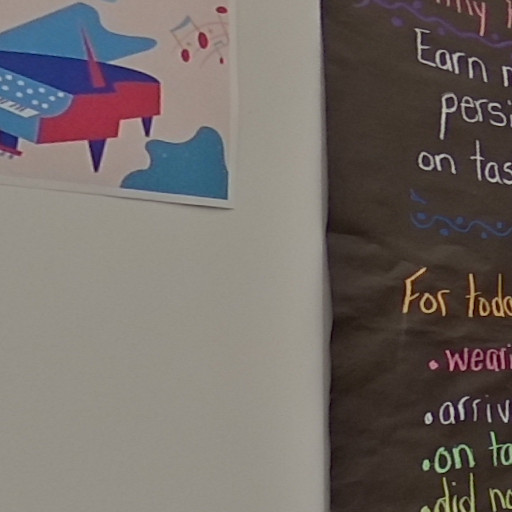 my
Earn
persi
on tas
For toda
• weari
• arriv
• on ta
• did no